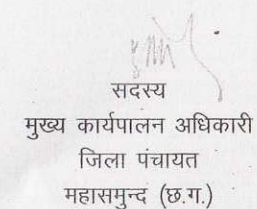 सदस्य
मुख्य कार्यपालन अधिकारी
जिला पंचायत
महासमुन्द (छ.ग.)